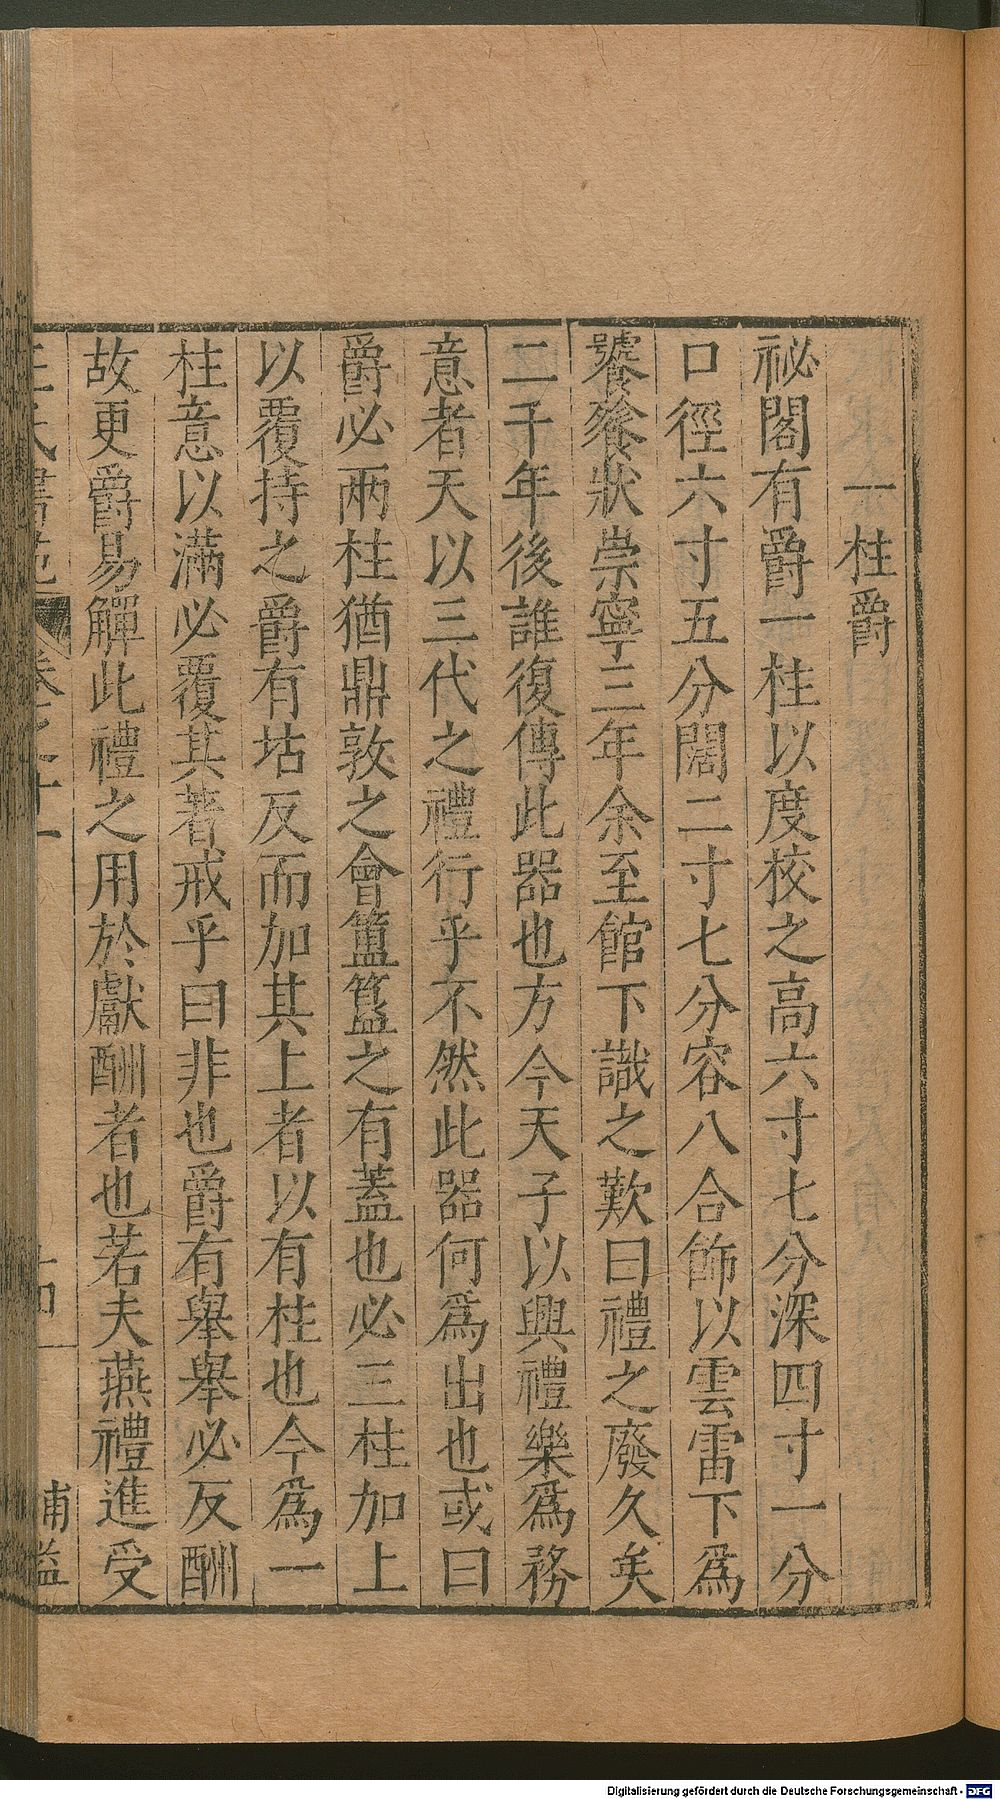 一柱爵
祕閣有爵一柱以度校之高六寸七分深四寸一分
口徑六寸五分闊二寸七分容八合飾以雲雷下爲
饕餮狀崇寧三年余至館下識之歎曰禮之廢久矣
二千年後誰復傳此器也方今天子以興禮樂爲務
意者天以三代之禮行乎不然此器何爲出也或曰
爵必兩柱猶鼎敦之會簠簋之有蓋也必三柱加上
以覆持之爵有坫反而加其上者以有柱也今爲一
柱意以滿必覆其著戒乎曰非也爵有舉舉必反酬
故更爵易觶此禮之用於獻酬者也若夫燕禮進受
王氏書苑 卷之十一
Digitalisierung gefördert durch die Deutsche Forschungsgemeinschaft - DFG